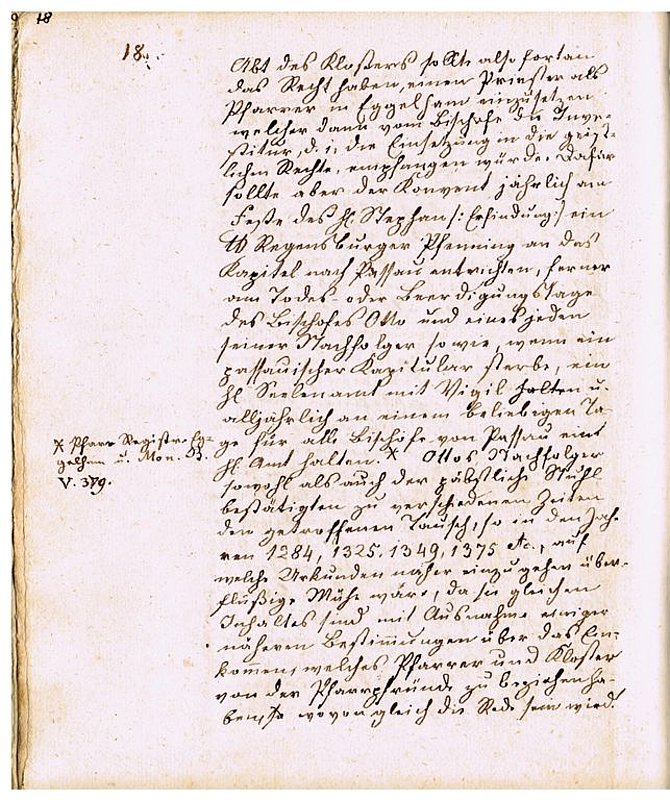 18
18.
Abt des Klosters sollte also fortan
das Recht haben, einen Priester als
Pfarrer in Eggelham einzusetzen
welcher dann vom Bischofe die Inve-
stitur, d. i. die Einsetzung in die geist-
lichen Rechte, empfangen würde. Dafür
sollte aber der Konvent jährlich am
Feste des hl. Stephan /: Erfindung :/ ein
℔ Regensburger Pfenning an das
Kapitel nach Passau entrichten, ferner
am Todes- oder Beerdigungstage
des Bischofes Otto und eines jeden
seiner Nachfolger so wie, wenn ein
passauischer Kapitular sterbe, ein
hl. Seelenamt mit Vigil halten u.
alljährlich an einem beliebigen Ta-
ge für alle Bischöfe von Passau eine
hl. Amt halten. X Ottos Nachfolger
sowohl als auch der päbstliche Stuhl
bestätigten zu verschiedenen Zeiten
den getroffenen Tausch, so in den Jah-
ren 1284, 1325, 1349, 1375 etc., auf
welche Urkunden näher einzugehen über-
flüßige Mühe wäre, da sie gleichen
Inhaltes sind mit Ausnahme einiger
näheren Bestimmungen über das Ein-
kommen, welches Pfarrer und Kloster
von der Pfarrpfründe zu beziehen ha-
ben, wovon gleich die Rede sein wird.
X Pfarr Registr. Eg-
gelham u. Mon. B.
V. 379.